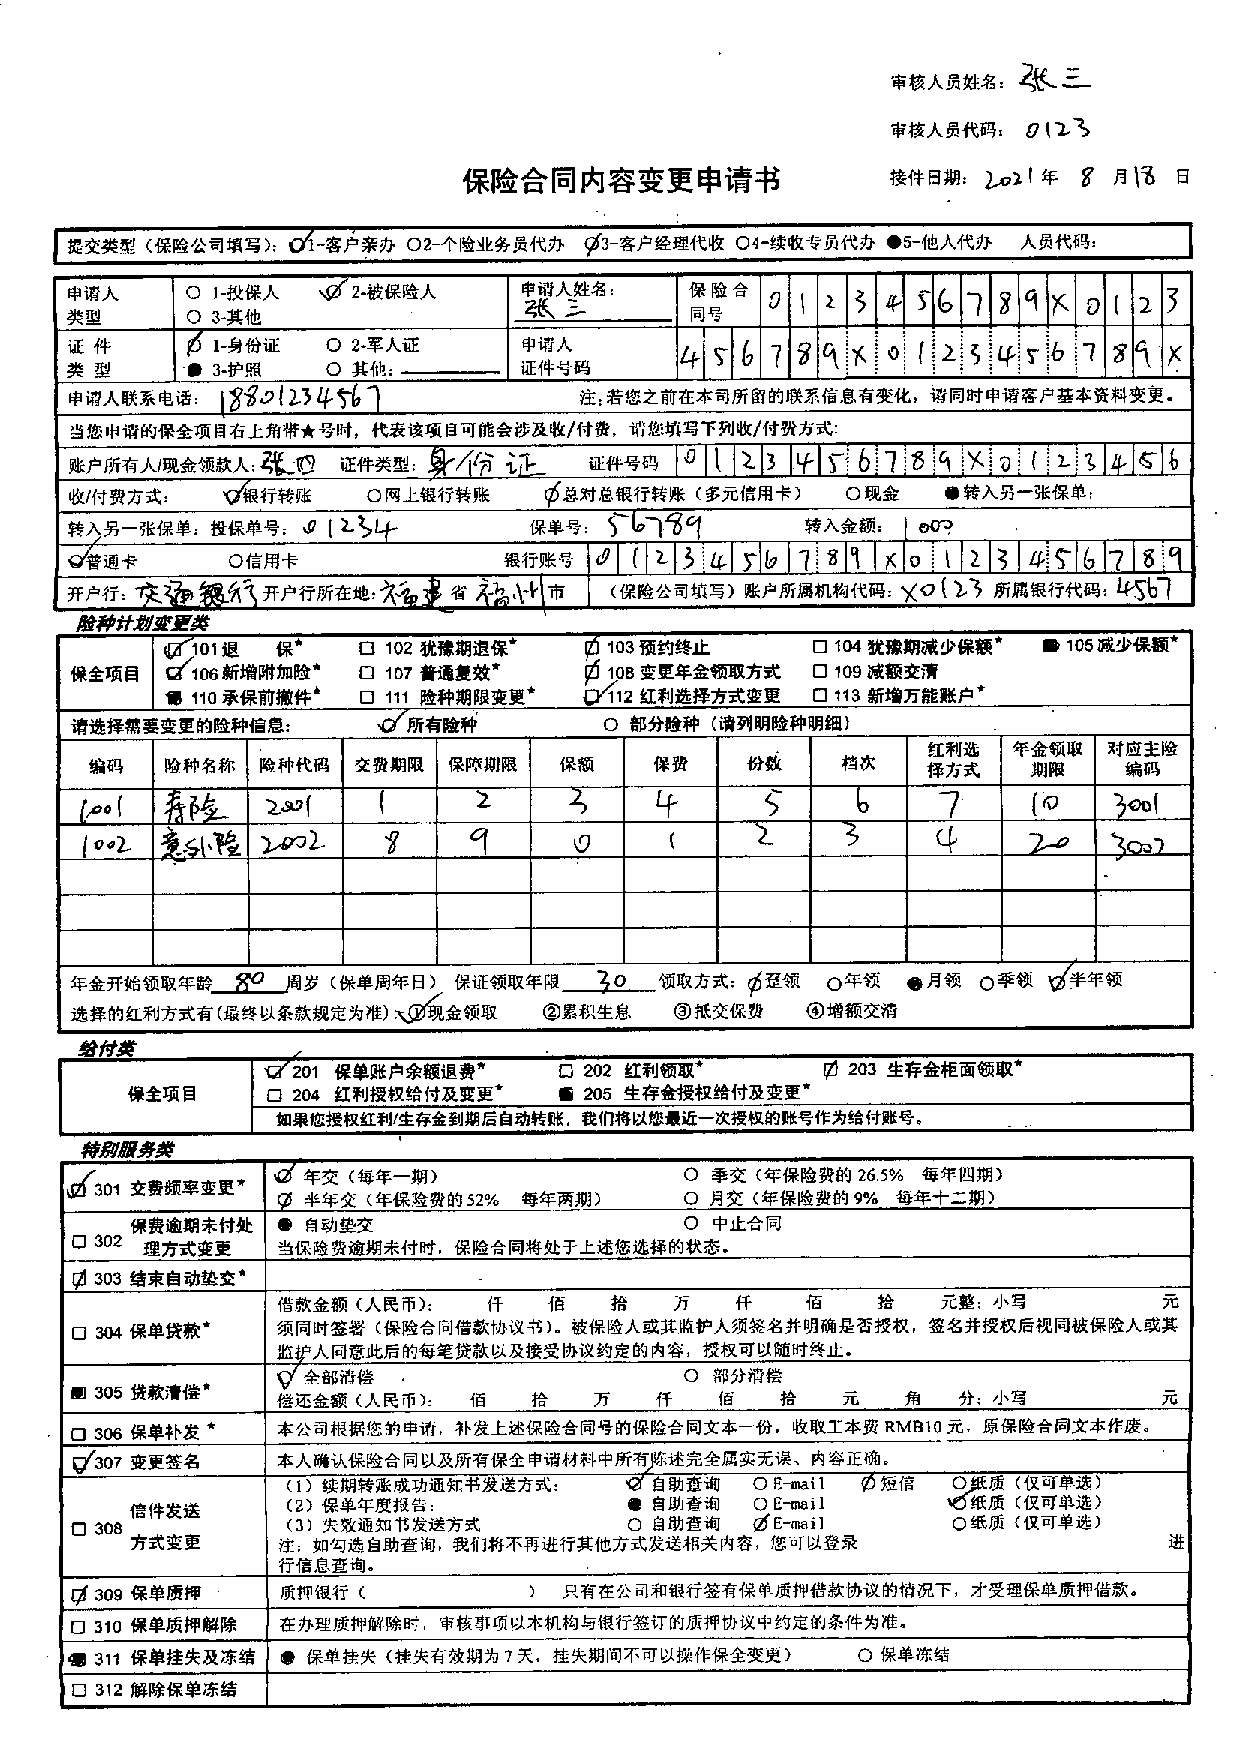 审核人员姓名：张三
审核人员代码：0123
保险合同内容变更申请书
接件日期：2021年8月18日
提交类型（保险公司填写）：1-客户亲办 ○2-个险业务员代办 3-客户经理代收 ○4-续收专员代办 ●5-他人代办 人员代码：
申请人类型 ○ 1-投保人 2-被保险人 ○ 3-其他 申请人姓名：张三 保险合同号 0123456789X0123
证件类型 1-身份证 ○ 2-军人证 ● 3-护照 ○ 其他： 申请人证件号码 456789X0123456789X
申请人联系电话：18801234567 注：若您之前在本司所留的联系信息有变化，请同时申请客户基本资料变更。
当您申请的保全项目右上角带★号时，代表该项目可能会涉及收/付费，请您填写下列收/付费方式：
账户所有人/现金领款人：张四 证件类型：身份证 证件号码 0123456789X0123456
收/付费方式： 银行转账 ○网上银行转账 总对总银行转账（多元信用卡） ○现金 ●转入另一张保单：
转入另一张保单：投保单号：01234 保单号：56789 转入金额：1000
普通卡 ○信用卡 银行账号 0123456789X0123456789
开户行：交通银行 开户行所在地：福建省福州市 （保险公司填写）账户所属机构代码：X0123 所属银行代码：4567
险种计划变更类
保全项目
101退 保* □ 102 犹豫期退保* 103 预约终止 □ 104 犹豫期减少保额* ■ 105减少保额*
106新增附加险* □ 107 普通复效* 108 变更年金领取方式 □ 109 减额交清
■ 110 承保前撤件* □ 111 险种期限变更* 112 红利选择方式变更 □ 113 新增万能账户*
请选择需要变更的险种信息： 所有险种 ○ 部分险种（请列明险种明细）
编码 险种名称 险种代码 交费期限 保障期限 保额 保费 份数 档次 红利选择方式 年金领取期限 对应主险编码
1001 寿险 2001 1 2 3 4 5 6 7 10 3001
1002 意外险 2002 8 9 0 1 2 3 4 20 3002
年金开始领取年龄 80 周岁（保单周年日） 保证领取年限 30 领取方式： 趸领 ○年领 ●月领 ○季领 半年领
选择的红利方式有(最终以条款规定为准)： ①现金领取 ②累积生息 ③抵交保费 ④增额交清
给付类
保全项目
201 保单账户余额退费* □ 202 红利领取* 203 生存金柜面领取*
□ 204 红利授权给付及变更* ■ 205 生存金授权给付及变更*
如果您授权红利/生存金到期后自动转账，我们将以您最近一次授权的账号作为给付账号。
特别服务类
301 交费频率变更* 年交（每年一期） ○ 季交（年保险费的26.5% 每年四期）
半年交（年保险费的52% 每年两期） ○ 月交（年保险费的9% 每年十二期）
□ 302 保费逾期未付处理方式变更 ● 自动垫交 ○ 中止合同
当保险费逾期未付时，保险合同将处于上述您选择的状态。
303 结束自动垫交*
□ 304 保单贷款* 借款金额（人民币）： 仟 佰 拾 万 仟 佰 拾 元整；小写 元
须同时签署（保险合同借款协议书）。被保险人或其监护人须签名并明确是否授权，签名并授权后视同被保险人或其
监护人同意此后的每笔贷款以及接受协议约定的内容，授权可以随时终止。
■ 305 贷款清偿* 全部清偿 ○ 部分清偿
偿还金额（人民币）： 佰 拾 万 仟 佰 拾 元 角 分；小写 元
□ 306 保单补发* 本公司根据您的申请，补发上述保险合同号的保险合同文本一份，收取工本费RMB10元，原保险合同文本作废。
307 变更签名 本人确认保险合同以及所有保全申请材料中所有陈述完全属实无误、内容正确。
□ 308 信件发送方式变更
（1）续期转账成功通知书发送方式： 自助查询 ○E-mail 短信 ○纸质（仅可单选）
（2）保单年度报告： ● 自助查询 ○E-mail 纸质（仅可单选）
（3）失效通知书发送方式 ○ 自助查询 E-mail ○纸质（仅可单选）
注：如勾选自助查询，我们将不再进行其他方式发送相关内容，您可以登录 进
行信息查询。
309 保单质押 质押银行（ ） 只有在公司和银行签有保单质押借款协议的情况下，才受理保单质押借款。
□ 310 保单质押解除 在办理质押解除时，审核事项以本机构与银行签订的质押协议中约定的条件为准。
■ 311 保单挂失及冻结 ● 保单挂失（挂失有效期为7天，挂失期间不可以操作保全变更） ○ 保单冻结
□ 312 解除保单冻结